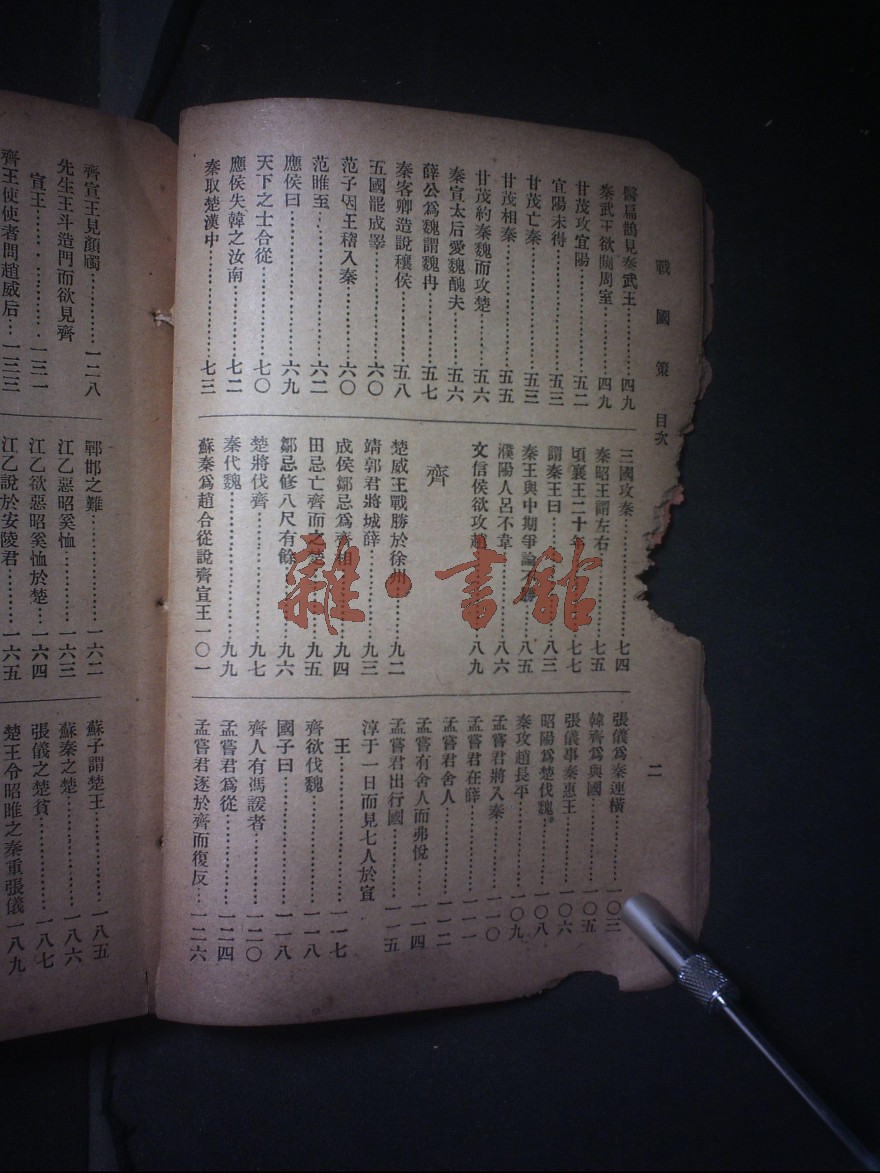 戰國策 目次
二
醫扁鵲見秦武王………四九
秦武王欲闚周室………四九
甘茂攻宜陽………五二
宜陽未得………五三
甘茂亡秦………五三
甘茂相秦………五五
甘茂約秦魏而攻楚………五六
秦宣太后愛魏醜夫………五六
薛公爲魏謂魏冉………五七
秦客卿造說穰侯………五八
五國罷成睪………六〇
范子因王稽入秦………六〇
范雎至………六二
應侯曰………六九
天下之士合從………七〇
應侯失韓之汝南………七二
秦取楚漢中………七三
三國攻秦………七四
秦昭王謂左右………七五
頃襄王二十年………七七
謂秦王曰………八三
秦王與中期爭論………八五
濮陽人呂不韋………八六
文信侯欲攻趙………八九
齊
楚威王戰勝於徐州………九二
靖郭君將城薛………九三
成侯鄒忌爲齊相………九四
田忌亡齊而之楚………九五
鄒忌修八尺有餘………九六
楚將伐齊………九七
秦代魏………九九
蘇秦爲趙合從說齊宣王一〇一
張儀爲秦連橫………一〇三
韓齊爲與國………一〇五
張儀事秦惠王………一〇六
昭陽爲楚伐魏………一〇八
秦攻趙長平………一〇九
孟嘗君將入秦………一一〇
孟嘗君在薛………一一一
孟嘗君舍人………一一二
孟嘗有舍人而弗悅………一一四
孟嘗君出行國………一一五
淳于一日而見七人於宣
王………一一七
齊欲伐魏………一一八
國子曰………一一八
齊人有馮諼者………一二〇
孟嘗君爲從………一二四
孟嘗君逐於齊而復反…一二六
齊宣王見顏斶………一二八
先生王斗造門而欲見齊
宣王………一三一
齊王使使者問趙威后…一三三
鄲邯之難………一六二
江乙惡昭奚恤………一六三
江乙欲惡昭奚恤於楚…一六四
江乙說於安陵君………一六五
蘇子謂楚王………一八五
蘇秦之楚………一八六
張儀之楚貧………一八七
楚王令昭雎之秦重張儀一八九
雜·書館